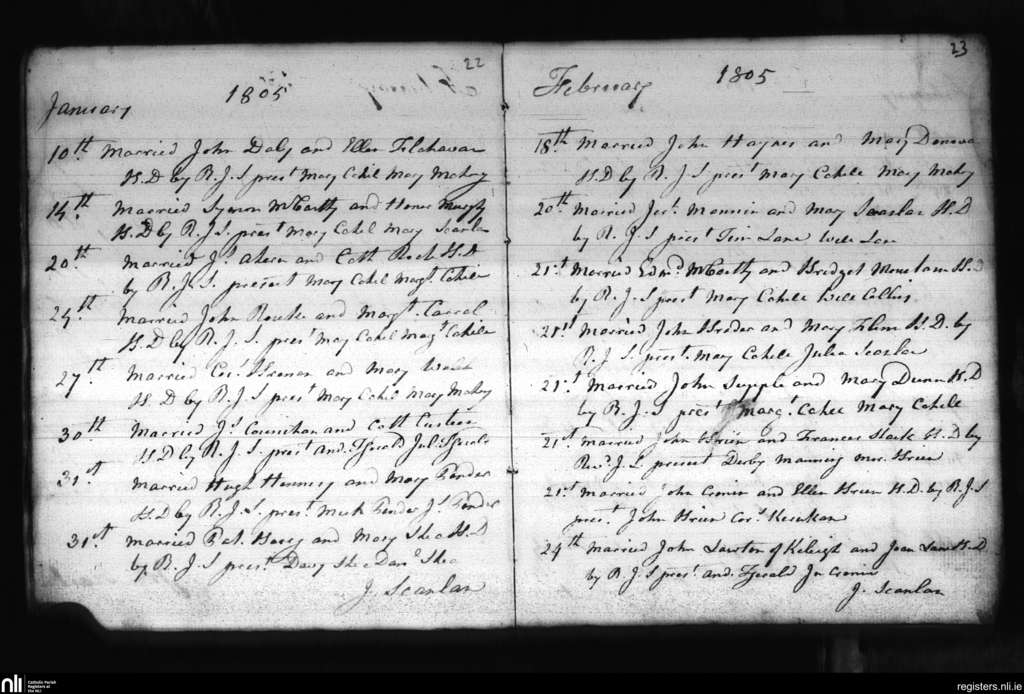 22
January 1805
10th Married John Daly and Ellen
H.D by R.J.S prest Mary Cahil Mary Mahony
14th Married Symon McCarthy and Honor Murphy
H.D by R.J.S. prest Mary Cahil Mary Scanlan
20th Married Js Ahern and Cath Roch H.D
by R.J.S. present Mary Cahil Margt Cahile
24th Married John Rourke and Margt Carrol
H.D by R.J.S. prest Mary Cahil Margt Cahile
27th Married Cors and Mary Walsh
H.D by R.J.S prest Mary Cahil Mary Mahony
30th Married Js Counihan and Cath
H.D by R.J.S. prest and. Fgerald Jul. Fgerald
31st Married Hugh Hennesy and Mary Pender
H.D by R.J.S. prest Mich Pender Js Pender
31st married Pat. Barry and Mary Shea H.D
by R.J.S prest Davy Shea Danl Shea
J. Scanlan
23
February 1805
18th Married John Haynes and Mary Donova
H.D by R.J.S prest Mary Cahile Mary Mahy
20th Married Jert. Mannin and Mary Scanlan H.D
by R.J.S prest Tim Lane Will Lane
21st Married Edmd McCarthy and Bridget H.D
by R.J.S prest Mary Cahile Bill Collins
21st Married John and Mary Flinn H.D. by
R.J.S. prest. Mary Cahile Julia Scanlan
21st Married John Supple and Mary Dunn H.D
by R.J.S prest Margt. Cahil Mary Cahile
21st married John Brien and Frances Hack H.D by
Revd. J.S present Derby Manning Mrs. Brien
21st married John Cronin and Ellen Brien H.D. by R.J.S
prest. John Brien Cors
24th Married John Lawton of Kileigh and Joan Lane H.D
by R.J.S prest. and. Fgerald Jn Cronin
J. Scanlan
nli Catholic Parish
Registers at
the NLI
registers.nli.ie